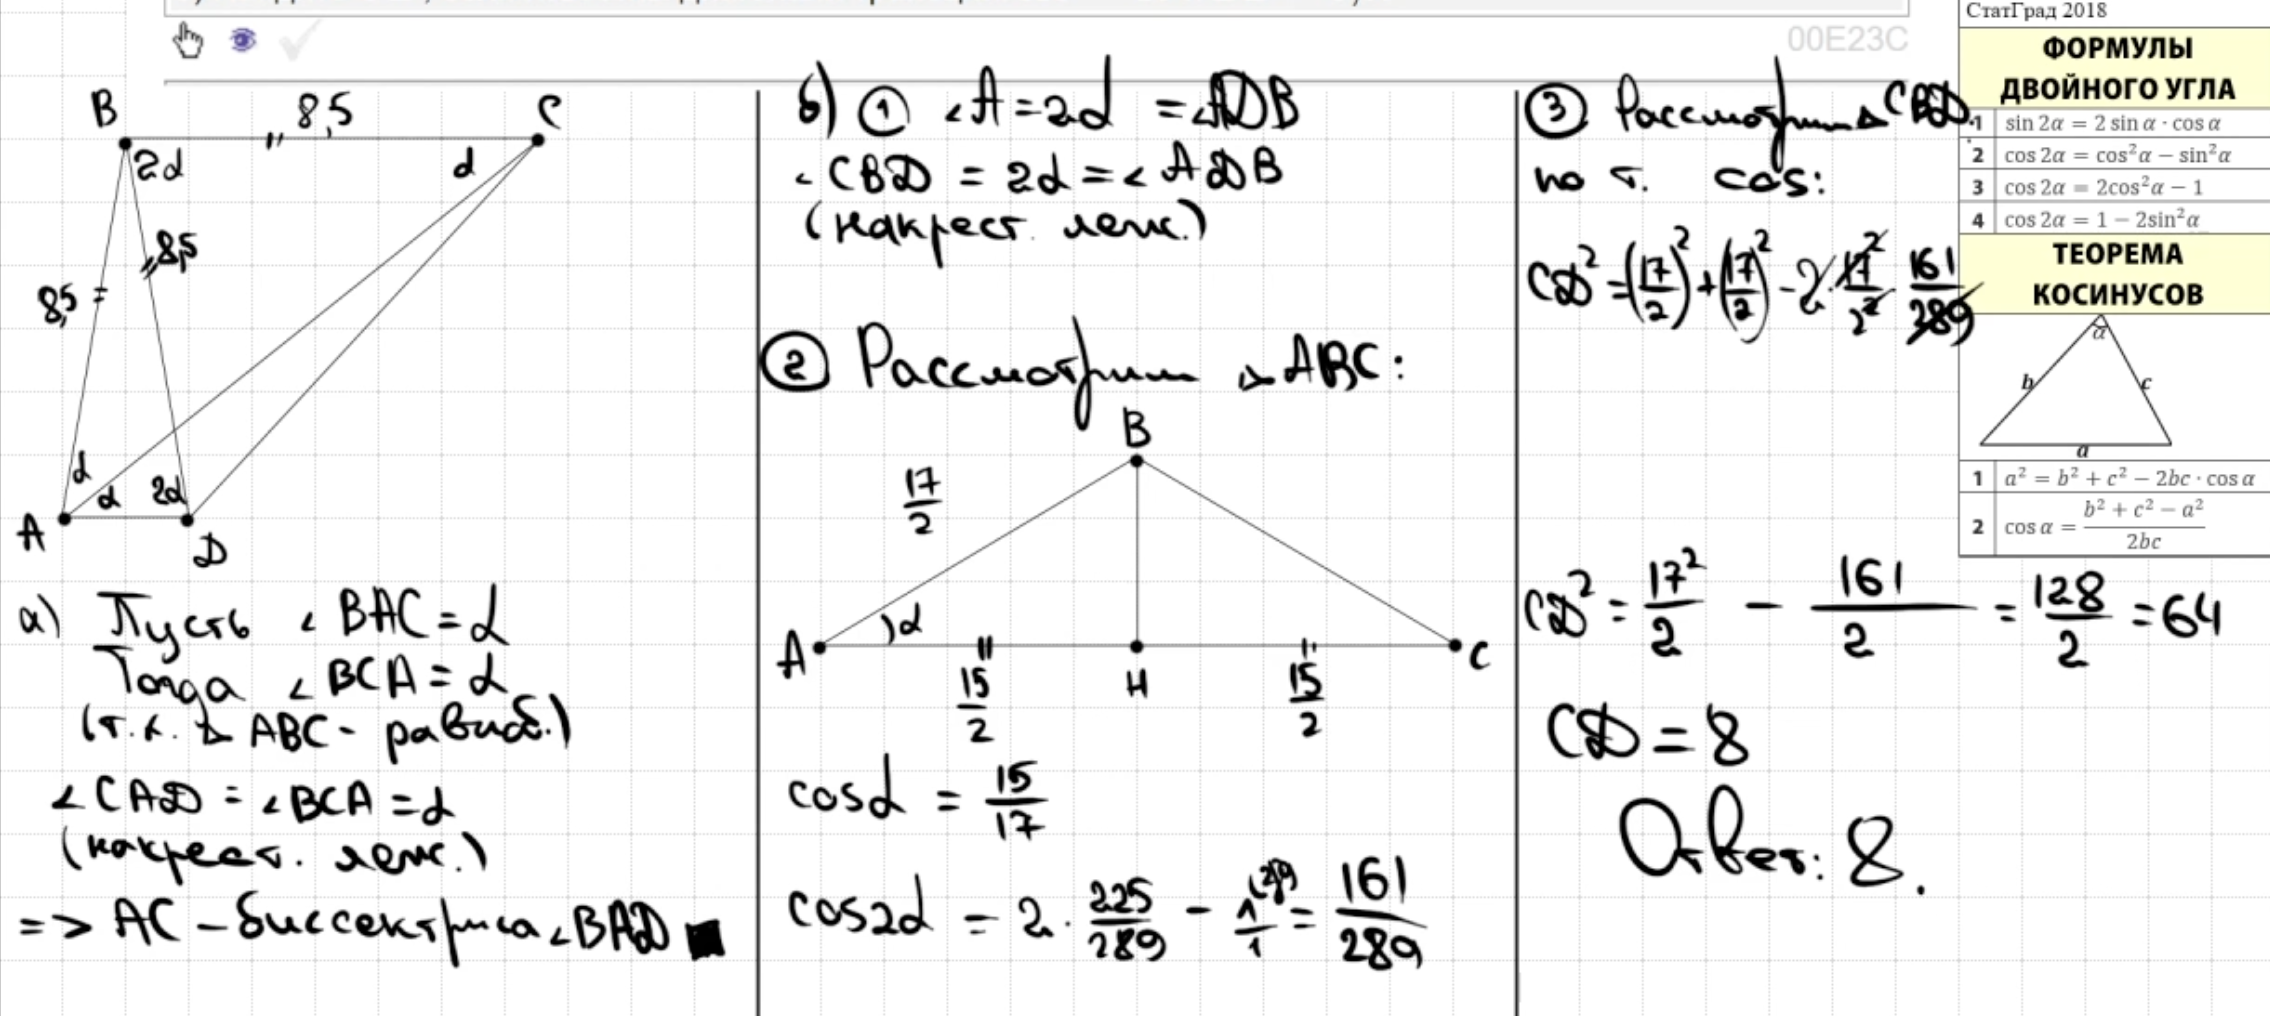 00E23C
B 8,5 C
2α α
8,5 8,5
α α 2α
A D
а) Пусть ∠BAC = α
Тогда ∠BCA = α
(т.к. △ ABC - равноб.)
∠CAD = ∠BCA = α
(накрест. леж.)
=> AC - биссектриса ∠BAD ■
б) ① ∠A = 2α = ∠ADB
∠CBD = 2α = ∠ADB
(накрест. леж.)
② Рассмотрим △ ABC:
B
17/2
α
A H C
15/2 15/2
cosα = 15/17
cos2α = 2 · 225/289 - 1/1 = 161/289
③ Рассмотрим △ CBD.
по т. cos:
CD² = (17/2)² + (17/2)² - 2 · 17²/2² · 161/289
CD² = 17²/2 - 161/2 = 128/2 = 64
CD = 8
Ответ: 8.
СтатГрад 2018
ФОРМУЛЫ
ДВОЙНОГО УГЛА
1 sin 2α = 2 sin α · cos α
2 cos 2α = cos²α − sin²α
3 cos 2α = 2cos²α − 1
4 cos 2α = 1 − 2sin²α
ТЕОРЕМА
КОСИНУСОВ
α
b c
a
1 a² = b² + c² − 2bc · cos α
2 cos α = (b² + c² − a²)/2bc